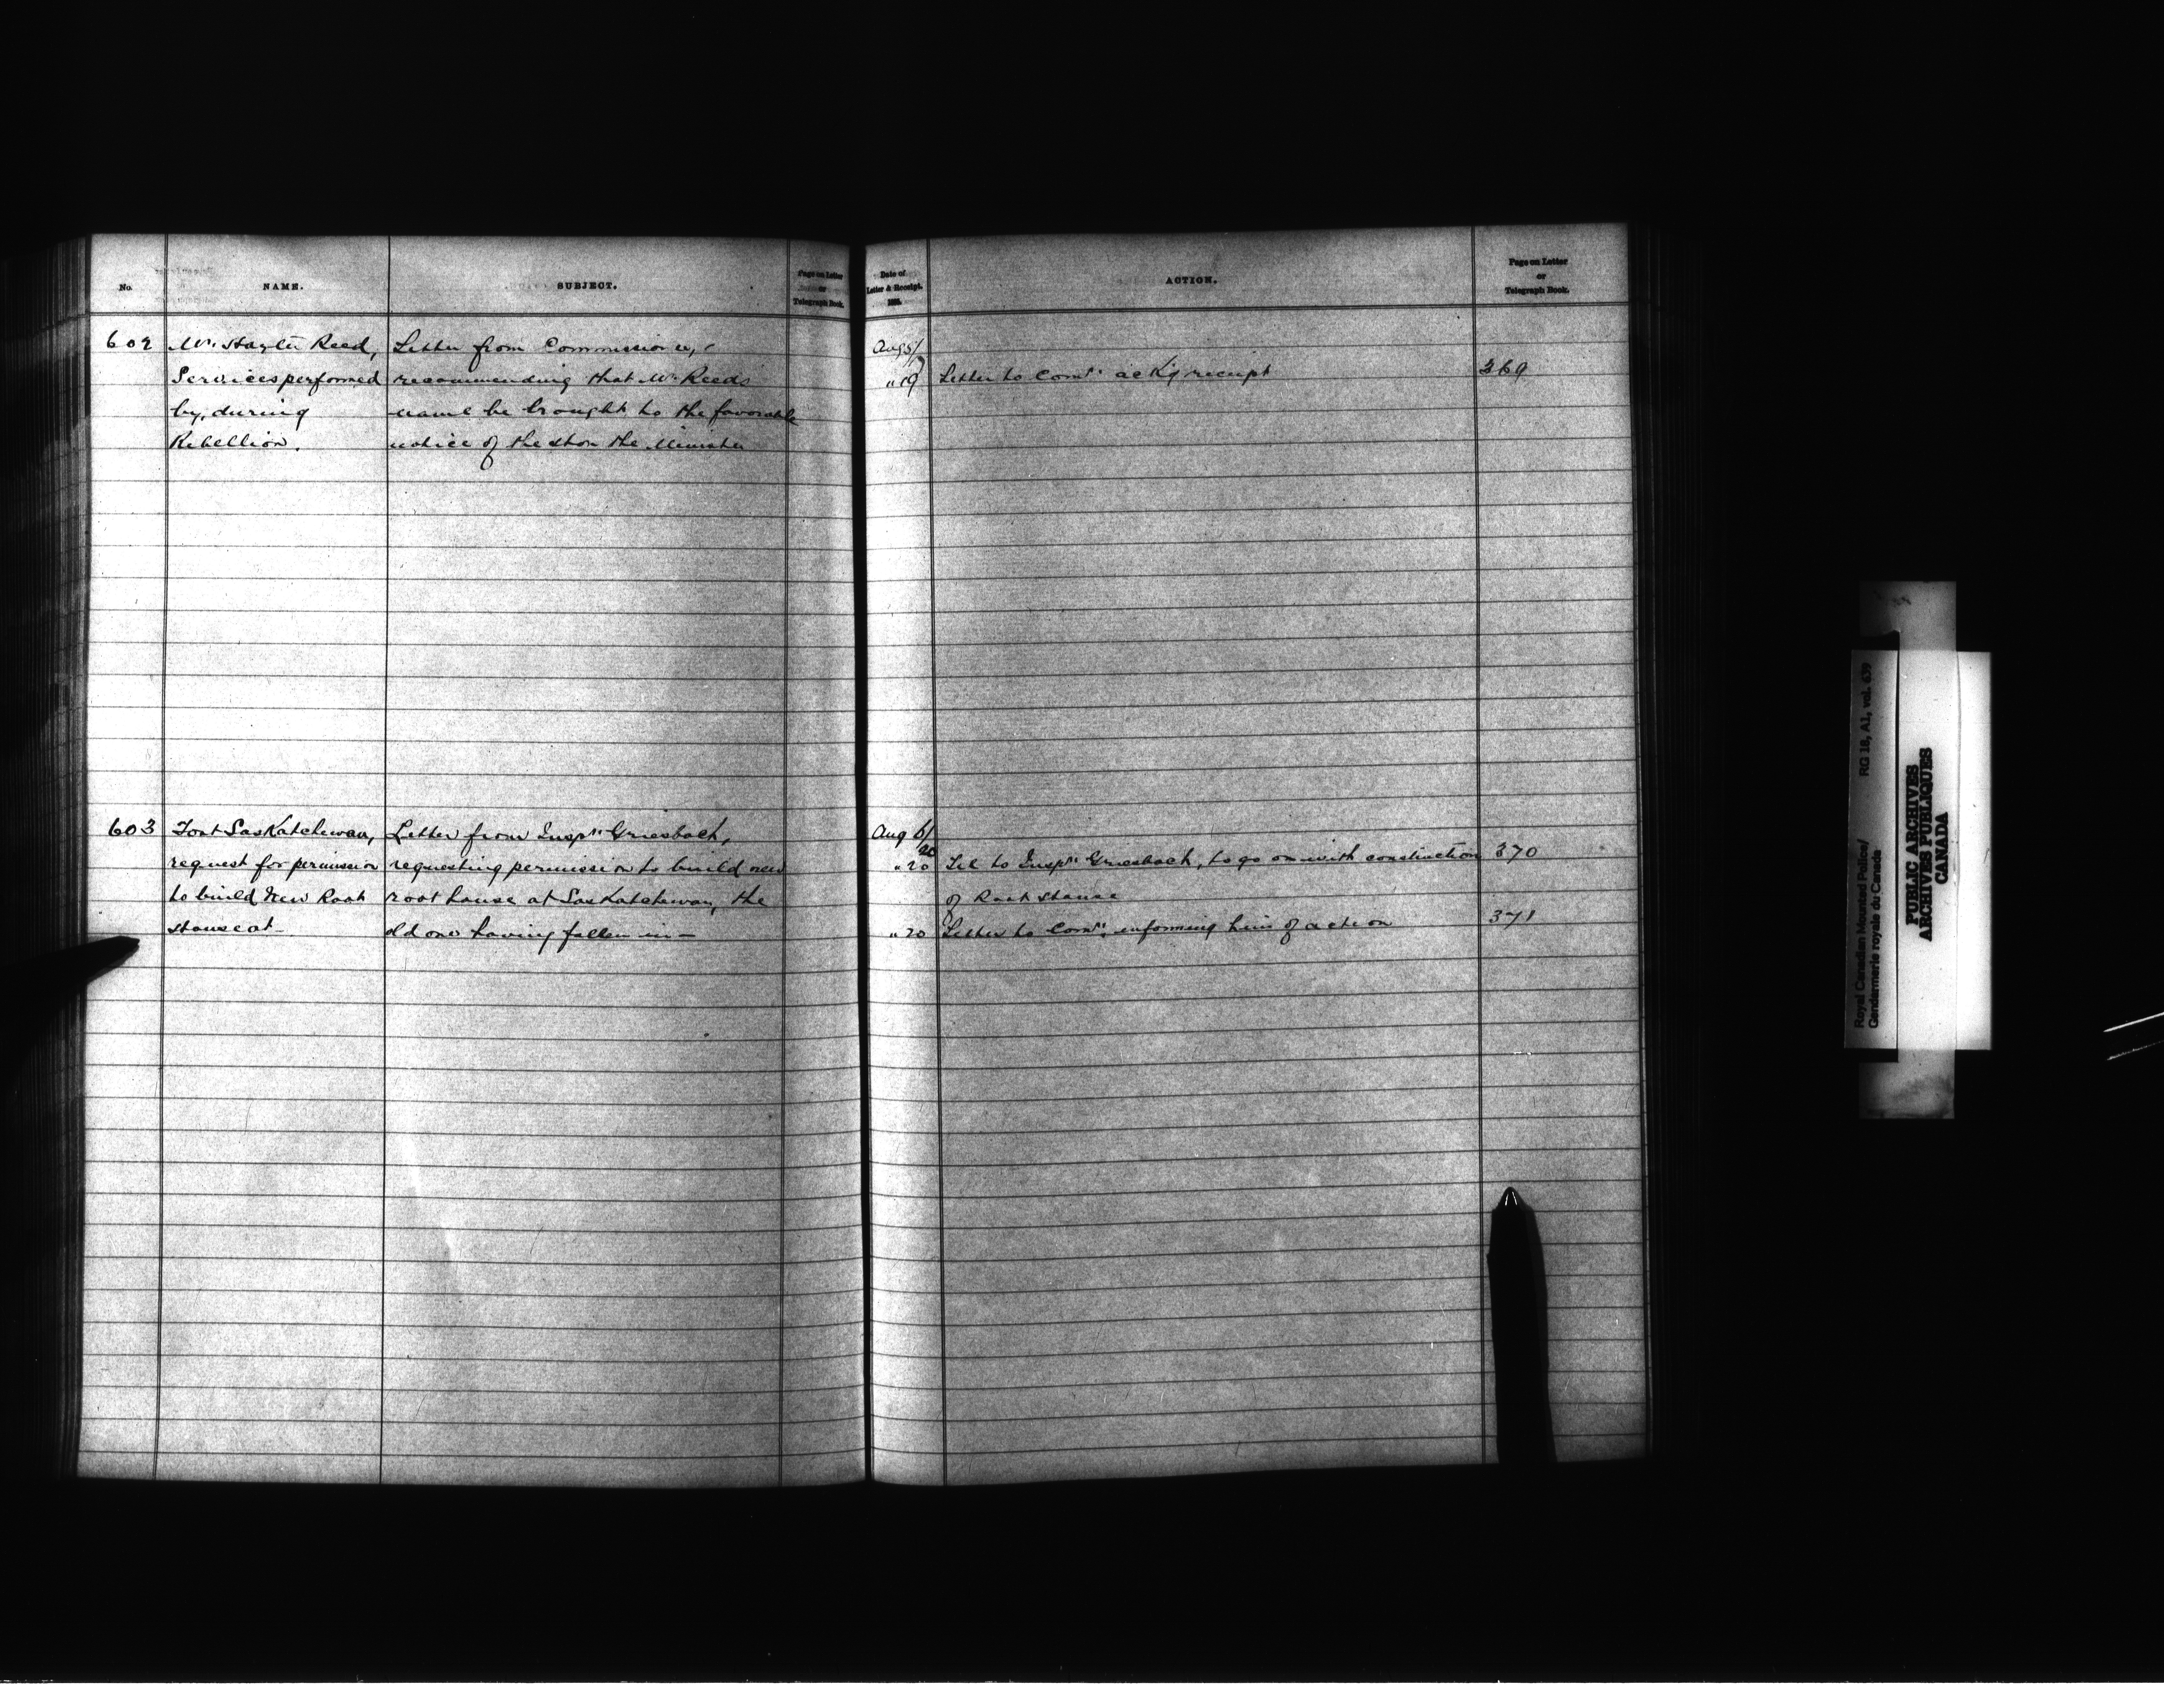 No.
NAME.
SUBJECT.
Page on Letter
or
Telegraph Book.
Date of
Letter & Receipt.
1885.
ACTION.
Page on Letter
or
Telegraph Book.
602
Mr. Hayter Reed,
Services performed
by, during
Rebellion.
Letter from Commissioner,
recommending that Mr Reeds
name be brought to the favorable
notice of the Hon the Minister
Aug 5/
19
" 19
Letter to Comr. ackg receipt
369
603
Fort Saskatchewan,
request for permission
to build New Root
House at
Letter from Inspr. Griesbach,
requesting permission to build new
root house at Saskatchewan, the
old one having fallen in—
Aug 6/
20
" 20
Tel to Inspr. Griesbach, to go on with construction
of Root House
370
" 20
Letter to Comr. informing him of action
371
Royal Canadian Mounted Police/
Gendarmerie royale du Canada
RG 18, A1, vol. 639
PUBLIC ARCHIVES
ARCHIVES PUBLIQUES
CANADA